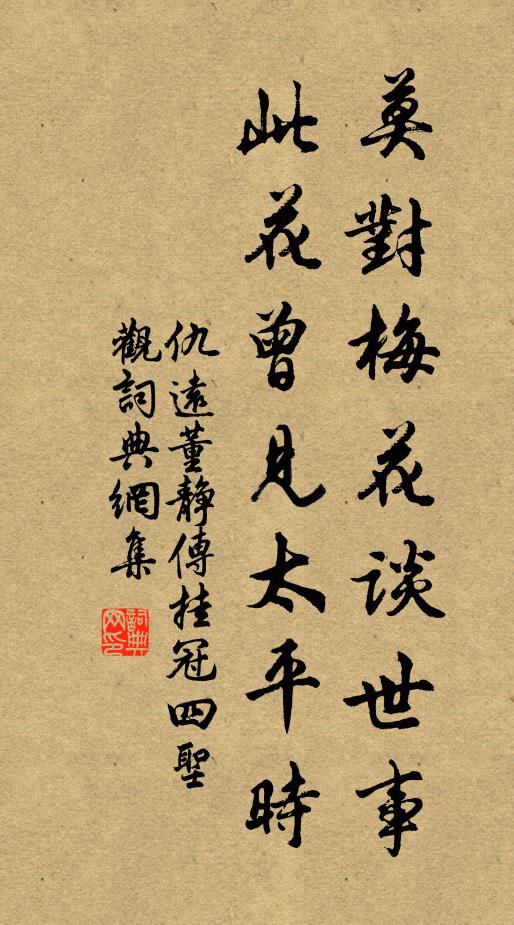 莫對梅花談世事
此花曾見太平時
仇遠董靜傳挂冠四聖
觀詞典網集
詞典網印